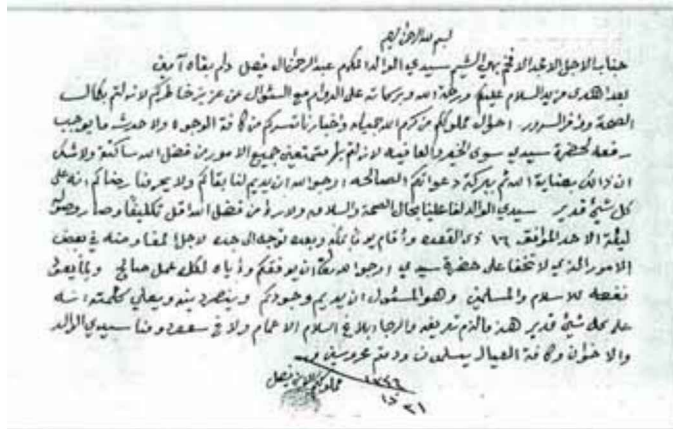 بسم الله الرحمن الرحيم
جناب الاجل الامجد الافخم بهي الشيم سيدي الوالد المكرم عبدالرحمن ال فيصل دام بقاه آمين
بعد اهدى مزيد السلام عليكم ورحمة الله وبركاته على الدوام مع السؤال عن عزيز خاطركم لازلتم بكمال
الصحة ووافر السرور احوال مملوككم من كرم الله جميله واخبارنا تسركم من كافة الوجوه ولا حدث ما يوجب
رفعه لحضرة سيدي سوى الخير والعافيه لازلتم متمتعين جميع الامور من فضل الله ساكنة ولا شك
ان ذالك بعناية الله ثم ببركة دعواتكم الصالحه ارجوا الله ان يديم لنا بقاكم ولا يحرمنا رضاكم انه على
كل شيء قدير سيدي الوالد لفا علينا بحال الصحة والسلامه من فضل الله اقل تكليفًا وصار وصوله
ليلة الاحد الموافق ١٦ ذي القعده وأقام يومًا بمكه وبعده توجه الى جده لاجل المفاوضه في بعض
الامور الذي لا تخفا على حضرة سيدي ارجوا الله تعالى ان يوفقكم واياه لكل عمل صالح وبما يعود
نفعه للاسلام والمسلمين وهو المسئول ان يديم وجودكم وينصر دينه ويعلي كلمته انه
على كل شيء قدير هذا مالزم تعريفه والرجا ابلاغ السلام الاعمام والاخ سعود ومنا سيدي الوالد
والاخوان وكافة العيال يسلمون ودمتم محروسين
مملوككم الابن فيصل